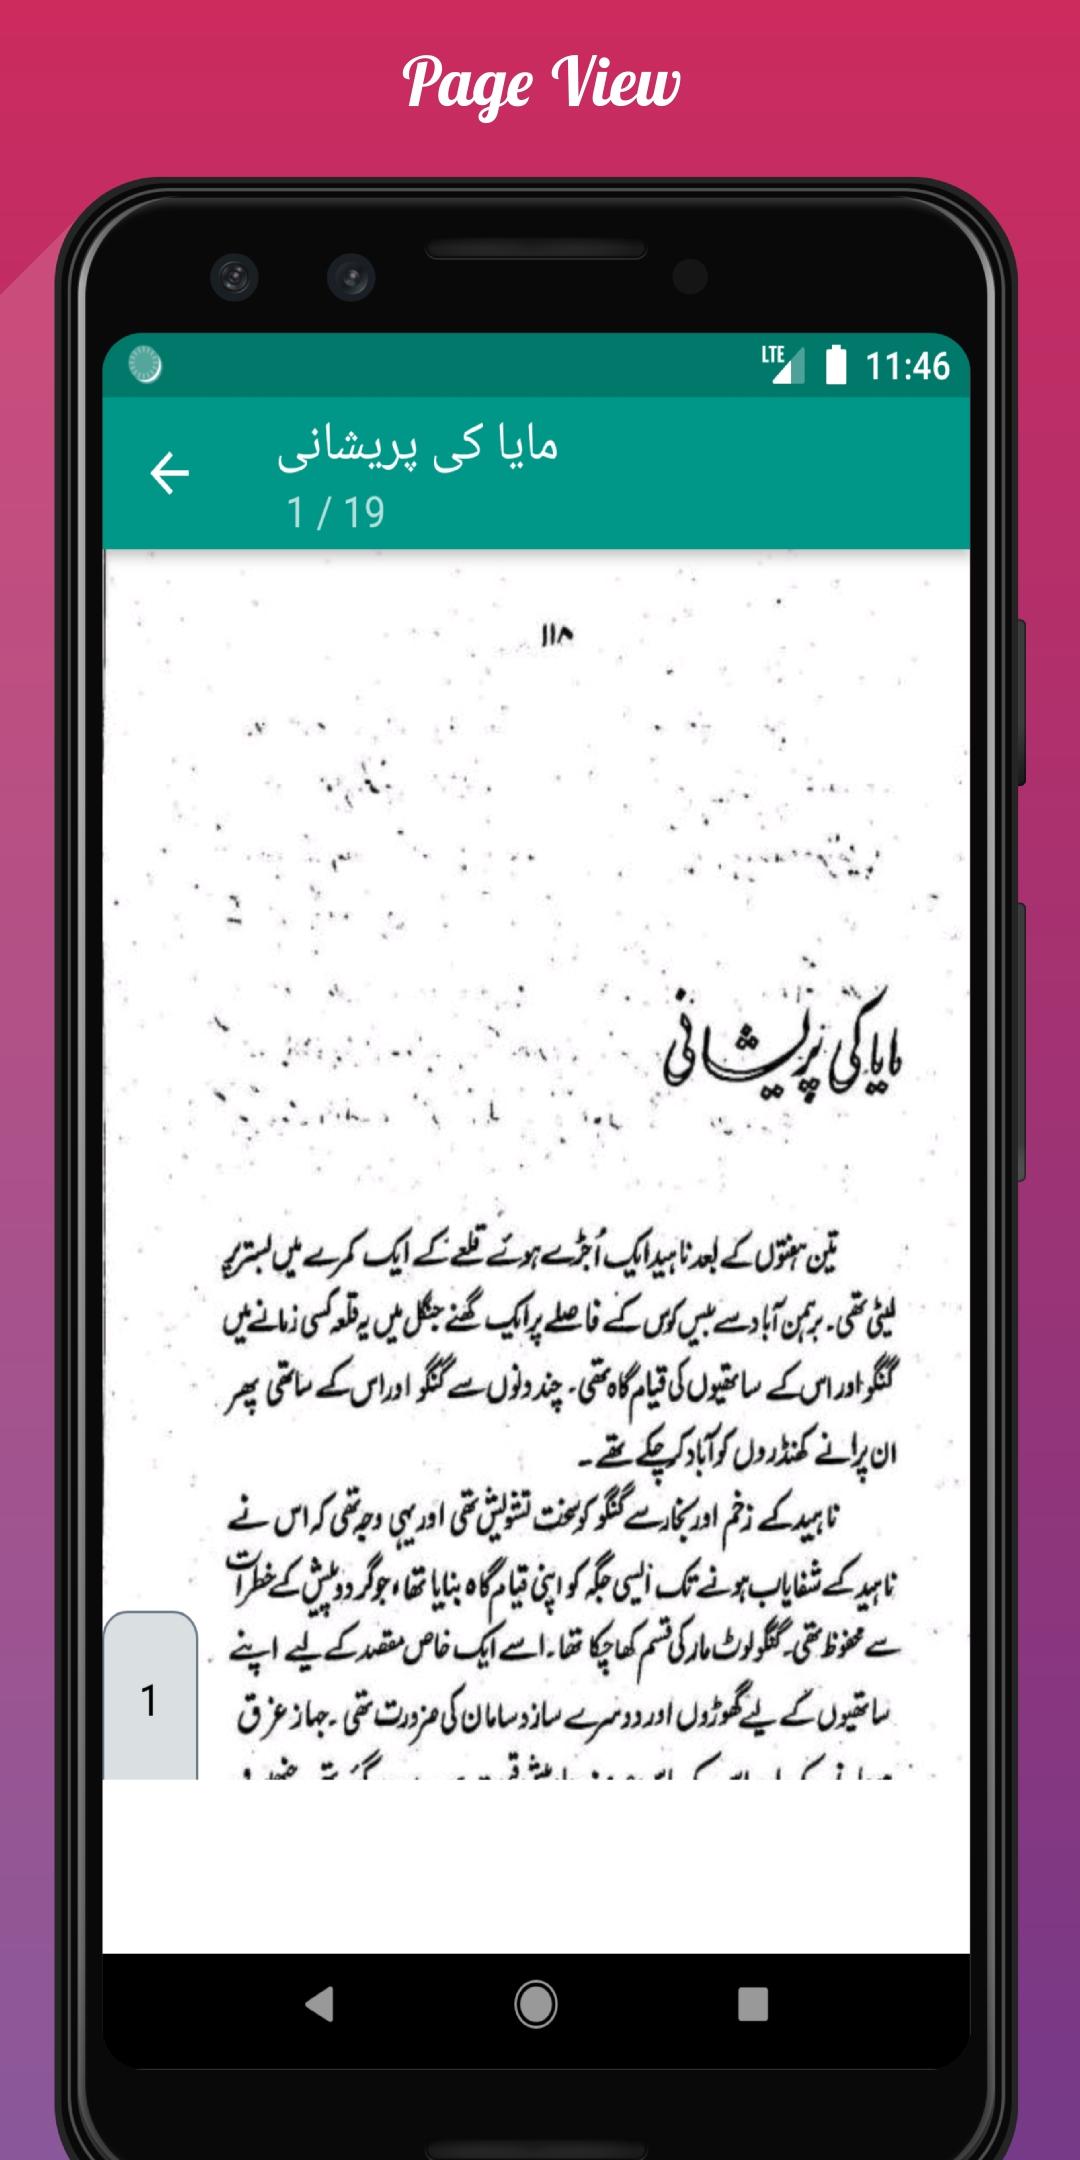 Page View
LTE 11:46
مایا کی پریشانی
1 / 19
۱۱۸
مایا کی پریشانی
تین ہفتوں کے بعد ناہید ایک اُجڑے ہوئے قلعے کے ایک کمرے میں بستر پر
لیٹی تھی۔ برہمن آباد سے بیس کوس کے فاصلے پر ایک گھنے جنگل میں یہ قلعہ کسی زمانے میں
گنگو اور اس کے ساتھیوں کی قیام گاہ تھی۔ چند دنوں سے گنگو اور اس کے ساتھی پھر
ان پرانے کھنڈروں کو آباد کر چکے تھے۔
ناہید کے زخم اور بخار سے گنگو کو سخت تشویش تھی اور یہی وجہ تھی کہ اس نے
ناہید کے شفایاب ہونے تک ایسی جگہ کو اپنی قیام گاہ بنایا تھا، جو گردو پیش کے خطرات
سے محفوظ تھی۔ گنگو لوٹ مار کی قسم کھا چکا تھا۔ اسے ایک خاص مقصد کے لیے اپنے
ساتھیوں کے لیے گھوڑوں اور دوسرے سازو سامان کی ضرورت تھی۔ جہاز غرق
1